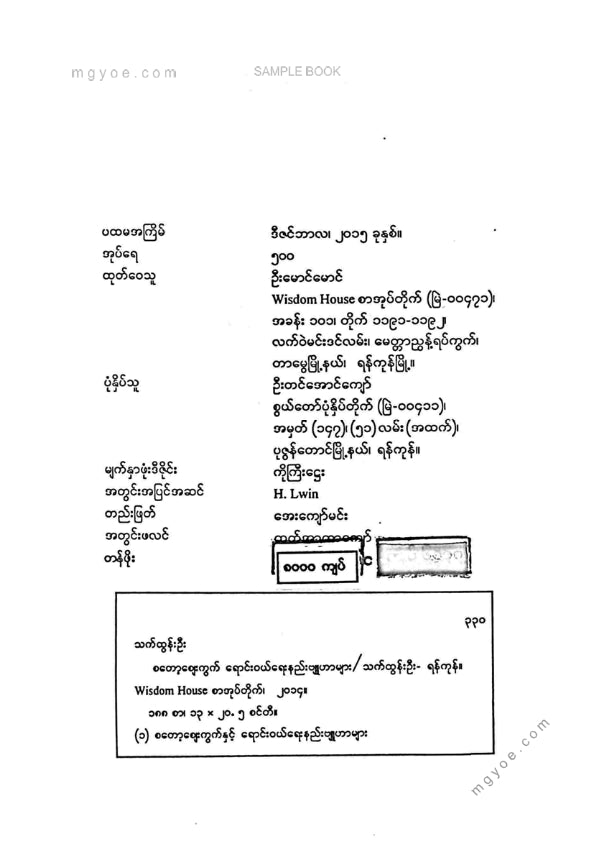 mgyoe.com SAMPLE BOOK
ပထမအကြိမ် ဒီဇင်ဘာလ၊ ၂၀၁၅ ခုနှစ်။
အုပ်ရေ ၅၀၀
ထုတ်ဝေသူ ဦးမောင်မောင်
Wisdom House စာအုပ်တိုက် (မြဲ-၀၀၄၇၁)၊
အခန်း ၁၀၁၊ တိုက် ၁၁၉၁-၁၁၉၂၊
လက်ဝဲမင်းဒင်လမ်း၊ မေတ္တာညွန့်ရပ်ကွက်၊
တာမွေမြို့နယ်၊ ရန်ကုန်မြို့။
ပုံနှိပ်သူ ဦးတင်အောင်ကျော်
စွယ်တော်ပုံနှိပ်တိုက် (မြဲ-၀၀၄၁၁)၊
အမှတ် (၁၄၇)၊ (၅၁) လမ်း (အထက်)၊
ပုဇွန်တောင်မြို့နယ်၊ ရန်ကုန်။
မျက်နှာဖုံးဒီဇိုင်း ကိုကြီးဌေး
အတွင်းအပြင်အဆင် H. Lwin
တည်းဖြတ် အေးကျော်မင်း
အတွင်းဖလင်
တန်ဖိုး ၈၀၀၀ ကျပ်
၃၃၀
သက်ထွန်းဦး
စတော့ဈေးကွက် ရောင်းဝယ်ရေးနည်းဗျူဟာများ/ သက်ထွန်းဦး- ရန်ကုန်။
Wisdom House စာအုပ်တိုက်၊ ၂၀၁၄။
၁၈၈ စာ၊ ၁၃ × ၂၀. ၅ စင်တီ။
(၁) စတော့ဈေးကွက်နှင့် ရောင်းဝယ်ရေးနည်းဗျူဟာများ
mgyoe.com